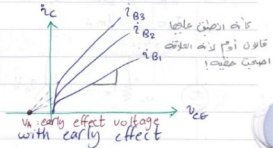 i_C
i_B3
i_B2
i_B1
كأنه انطبق عليها
قانون أوم لأنه العلاقة
اصبحت خطية!
V_A: early effect voltage
v_CE
with early effect